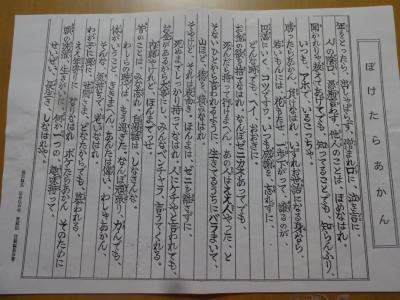 ぼけたらあかん
年をとったら出しゃばらず、憎まれ口に泣き言に
人のかげ口、愚痴言わず、他人のことは、ほめなはれ
聞かれりゃ教えてあげてでも、知ってることでも、知らんふり
いつも、アホで、いるこっちゃ。
勝ったらあかん、負けなはれ、いずれお世話になる身なら
若いもんには、花もたせ、一歩下がって、ゆずるのが
円満にいくコツですわ。いつも感謝を、忘れずに
どんな時でも、へえ、おおきに。
お金の欲を捨てなはれ、なんぼゼニカネあっても
死んだら持って行けまへん。あの人はええ人やった、と
そないひとから言われるように、生きてるうちにバラまいて
山ほど、徳を、積みなはれ。
そやけど、それは表向き、ほんまは、ゼニを離さずに
死ぬまでしっかり持ってなはれ。人にケチやと言われても
お金があるから大事にし、みんなベンチャラ言うてくれる
内緒やけれど、ほんまでっせ。
昔のことは、みな忘れ、自慢話は、しなさんな
わしらの時代は、もう過ぎた、なんぼ頑張り、力んでも
体がいうこときまへん、あんたは偉い、わしゃあかん
そんな気持ちで、おりなはれ。
わが子に孫に、世間さま、どなたからでも、慕われる
ええ年寄りに、なりなはれ、ボケたらあかん、そのために
頭の洗濯、生きがいに、何か一つの、趣味持って
せいぜい、長生き、しなはれや。